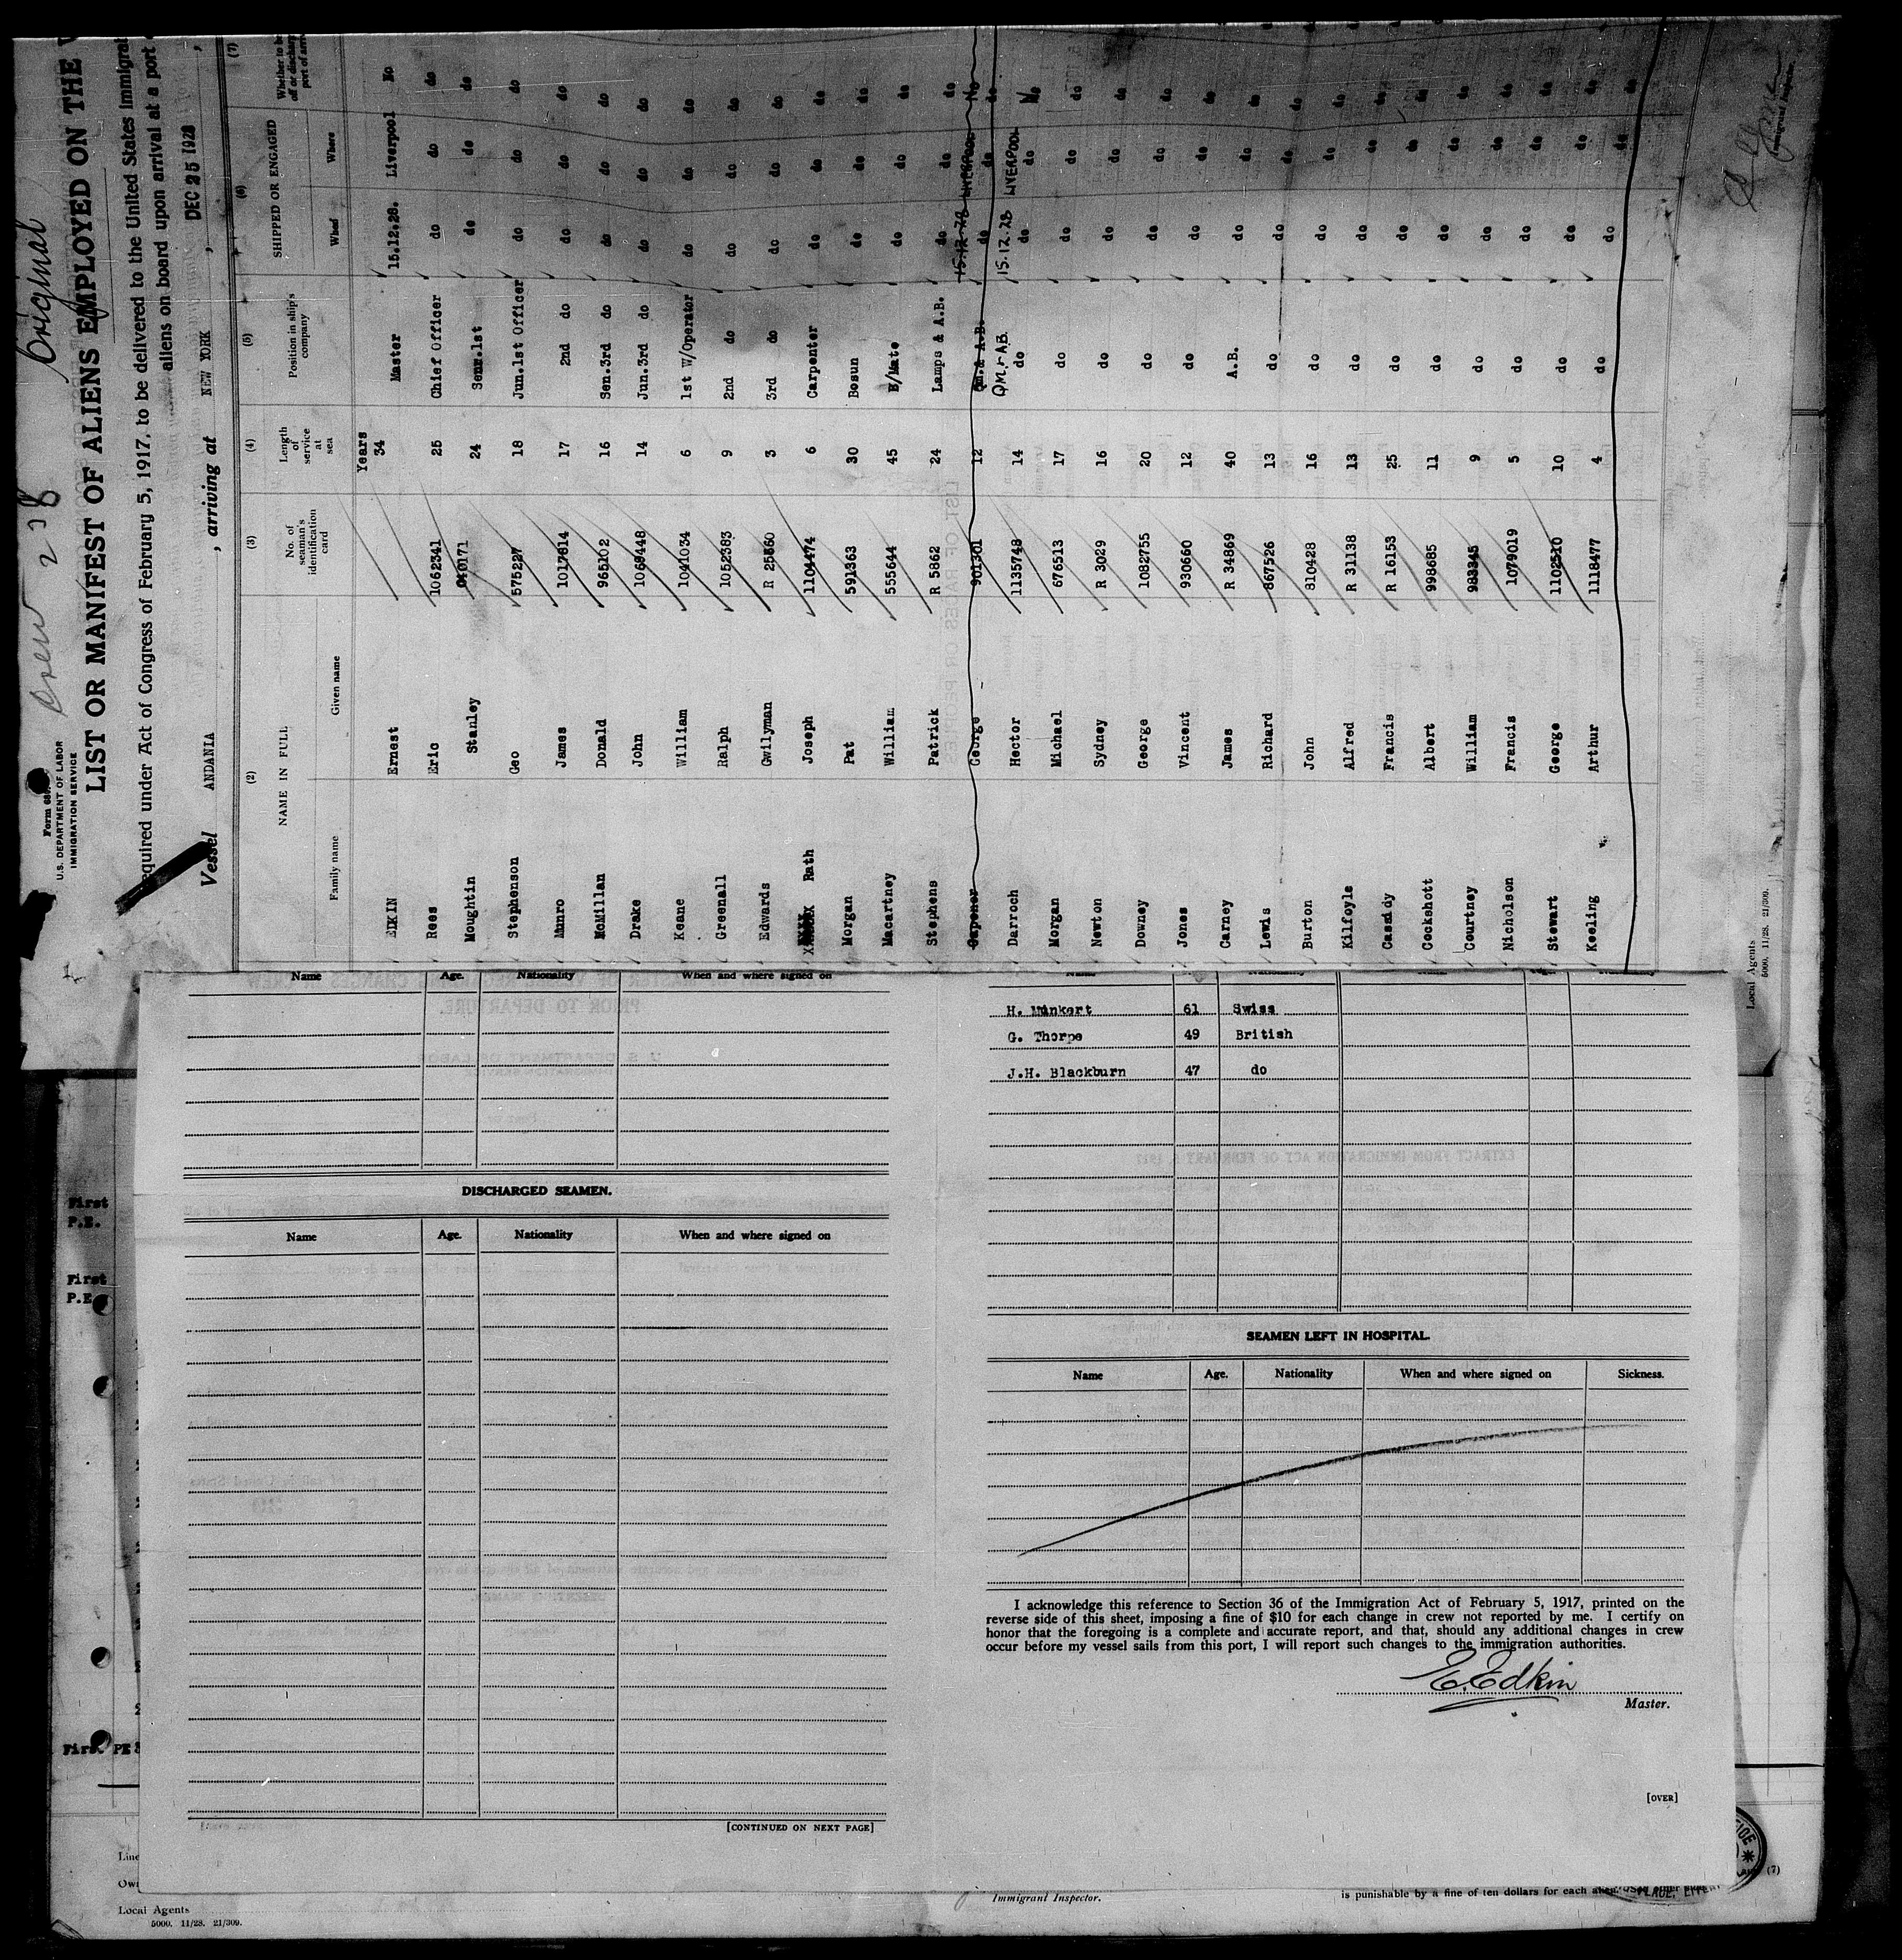 Original
Crew 238
Form 680
U.S. DEPARTMENT OF LABOR
IMMIGRATION SERVICE
LIST OR MANIFEST OF ALIENS EMPLOYED ON THE
equired under Act of Congress of February 5, 1917, to be delivered to the United States Immigrat
aliens on board upon arrival at a port
Vessel ANDANIA , arriving at NEW YORK , DEC 25 1928 ,
(2) (3) (4) (5) (6) (7)
NAME IN FULL No. of seaman's identification card Length of service at sea Position in ship's company SHIPPED OR ENGAGED Whether to be
Family name Given name When Where
Years
Ernest 34 Master 15.12.28. Liverpool No
Rees Eric 1062341 25 Chief Officer do do do
Moughtin Stanley 24 Sen.1st do do do
Stephenson Geo 575227 18 Jun.1st Officer do do do
Munro James 1017814 17 2nd do do do do
McMillan Donald 965102 16 Sen.3rd do do do do
Drake John 1069448 14 Jun.3rd do do do do
Keane William 1041034 6 1st W/Operator do do do
Greenall Ralph 1052383 9 2nd do do do do
Edwards Gwilyman R 25560 3 3rd do do do do
Rath Joseph 1104474 6 Carpenter do do do
Morgan Pat 591363 30 Bosun do do do
Macartney William 555644 45 B/Mate do do do
Stephens Patrick R 5862 24 Lamps & A.B. do do do
15.12.28 LIVERPOOL No
Capener George 901301 12 Qm.& A.B. do do do
QM. & AB. 15.12.28 LIVERPOOL
Darroch Hector 1135748 14 do do do
Morgan Michael 676513 17 do do do do
Newton Sydney R 3029 16 do do do do
Downey George 1082755 20 do do do do
Jones Vincent 930660 12 do do do do
Carney James R 34869 40 A.B. do do do
Lewis Richard 867526 13 do do do do
Burton John 810428 16 do do do do
Kilfoyle Alfred R 31138 13 do do do do
Cassidy Francis R 16153 25 do do do do
Cockshott Albert 998685 11 do do do do
Courtney William 983345 9 do do do do
Nicholson Francis 1079019 5 do do do do
Stewart George 1102510 10 do do do do
Keeling Arthur 1118477 4 do do do do
Local Agents
5000. 11/28. 21/309.
Name Age. Nationality When and where signed on
DISCHARGED SEAMEN.
Name Age. Nationality When and where signed on
[CONTINUED ON NEXT PAGE]
H. Munkert 61 Swiss
G. Thorpe 49 British
J.H. Blackburn 47 do
SEAMEN LEFT IN HOSPITAL.
Name Age. Nationality When and where signed on Sickness.
I acknowledge this reference to Section 36 of the Immigration Act of February 5, 1917, printed on the
reverse side of this sheet, imposing a fine of $10 for each change in crew not reported by me. I certify on
honor that the foregoing is a complete and accurate report, and that, should any additional changes in crew
occur before my vessel sails from this port, I will report such changes to the immigration authorities.
E. Edkin
Master.
[OVER]
First
P.E.
First
P.E
First PE
Line
Own
Local Agents
5000. 11/28. 21/309.
Immigrant Inspector.
is punishable by a fine of ten dollars for each alien
(7)